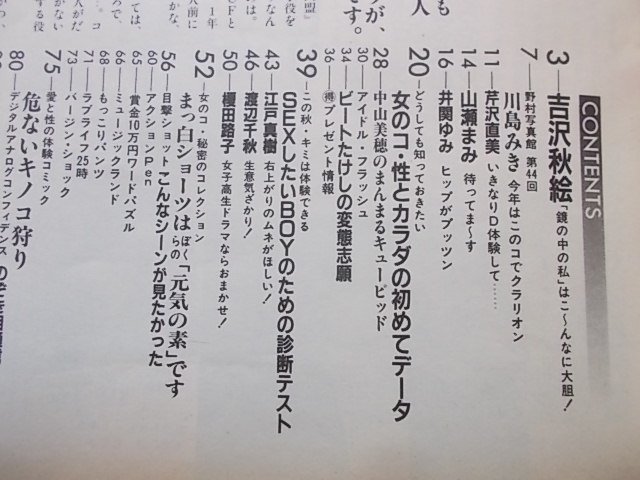 CONTENTS
3 吉沢秋絵 「鏡の中の私」はこ〜んなに大胆!
7 野村写真館 第44回
川島みき 今年はこのコでクラリオン
11 芹沢直美 いきなりD体験して……
14 山瀬まみ 待ってま〜す
16 井関ゆみ ヒップがプッツン
20 どうしても知っておきたい
女のコ・性とカラダの初めてデータ
28 中山美穂のまんまるキューピッド
30 アイドル・フラッシュ
34 ビートたけしの変態志願
36 ㊕プレゼント情報
39 この秋・キミは体験できる
SEXしたいBOYのための診断テスト
43 江戸真樹 右上がりのムネがほしい!
46 渡辺千秋 生意気ざかり!
50 榎田路子 女子高生ドラマならおまかせ!
52 女のコ・秘密のコレクション
まっ白ショーツはぼくらの「元気の素」です
56 目撃ショット こんなシーンが見たかった
60 アクションpen
65 賞金10万円ワードパズル
66 ミュージックランド
68 もっこりパンツ
71 ラブライフ25時
73 バージン・ショック
75 愛と性の体験コミック
危ないキノコ狩り
80 デジタルアナログコンフィデンス